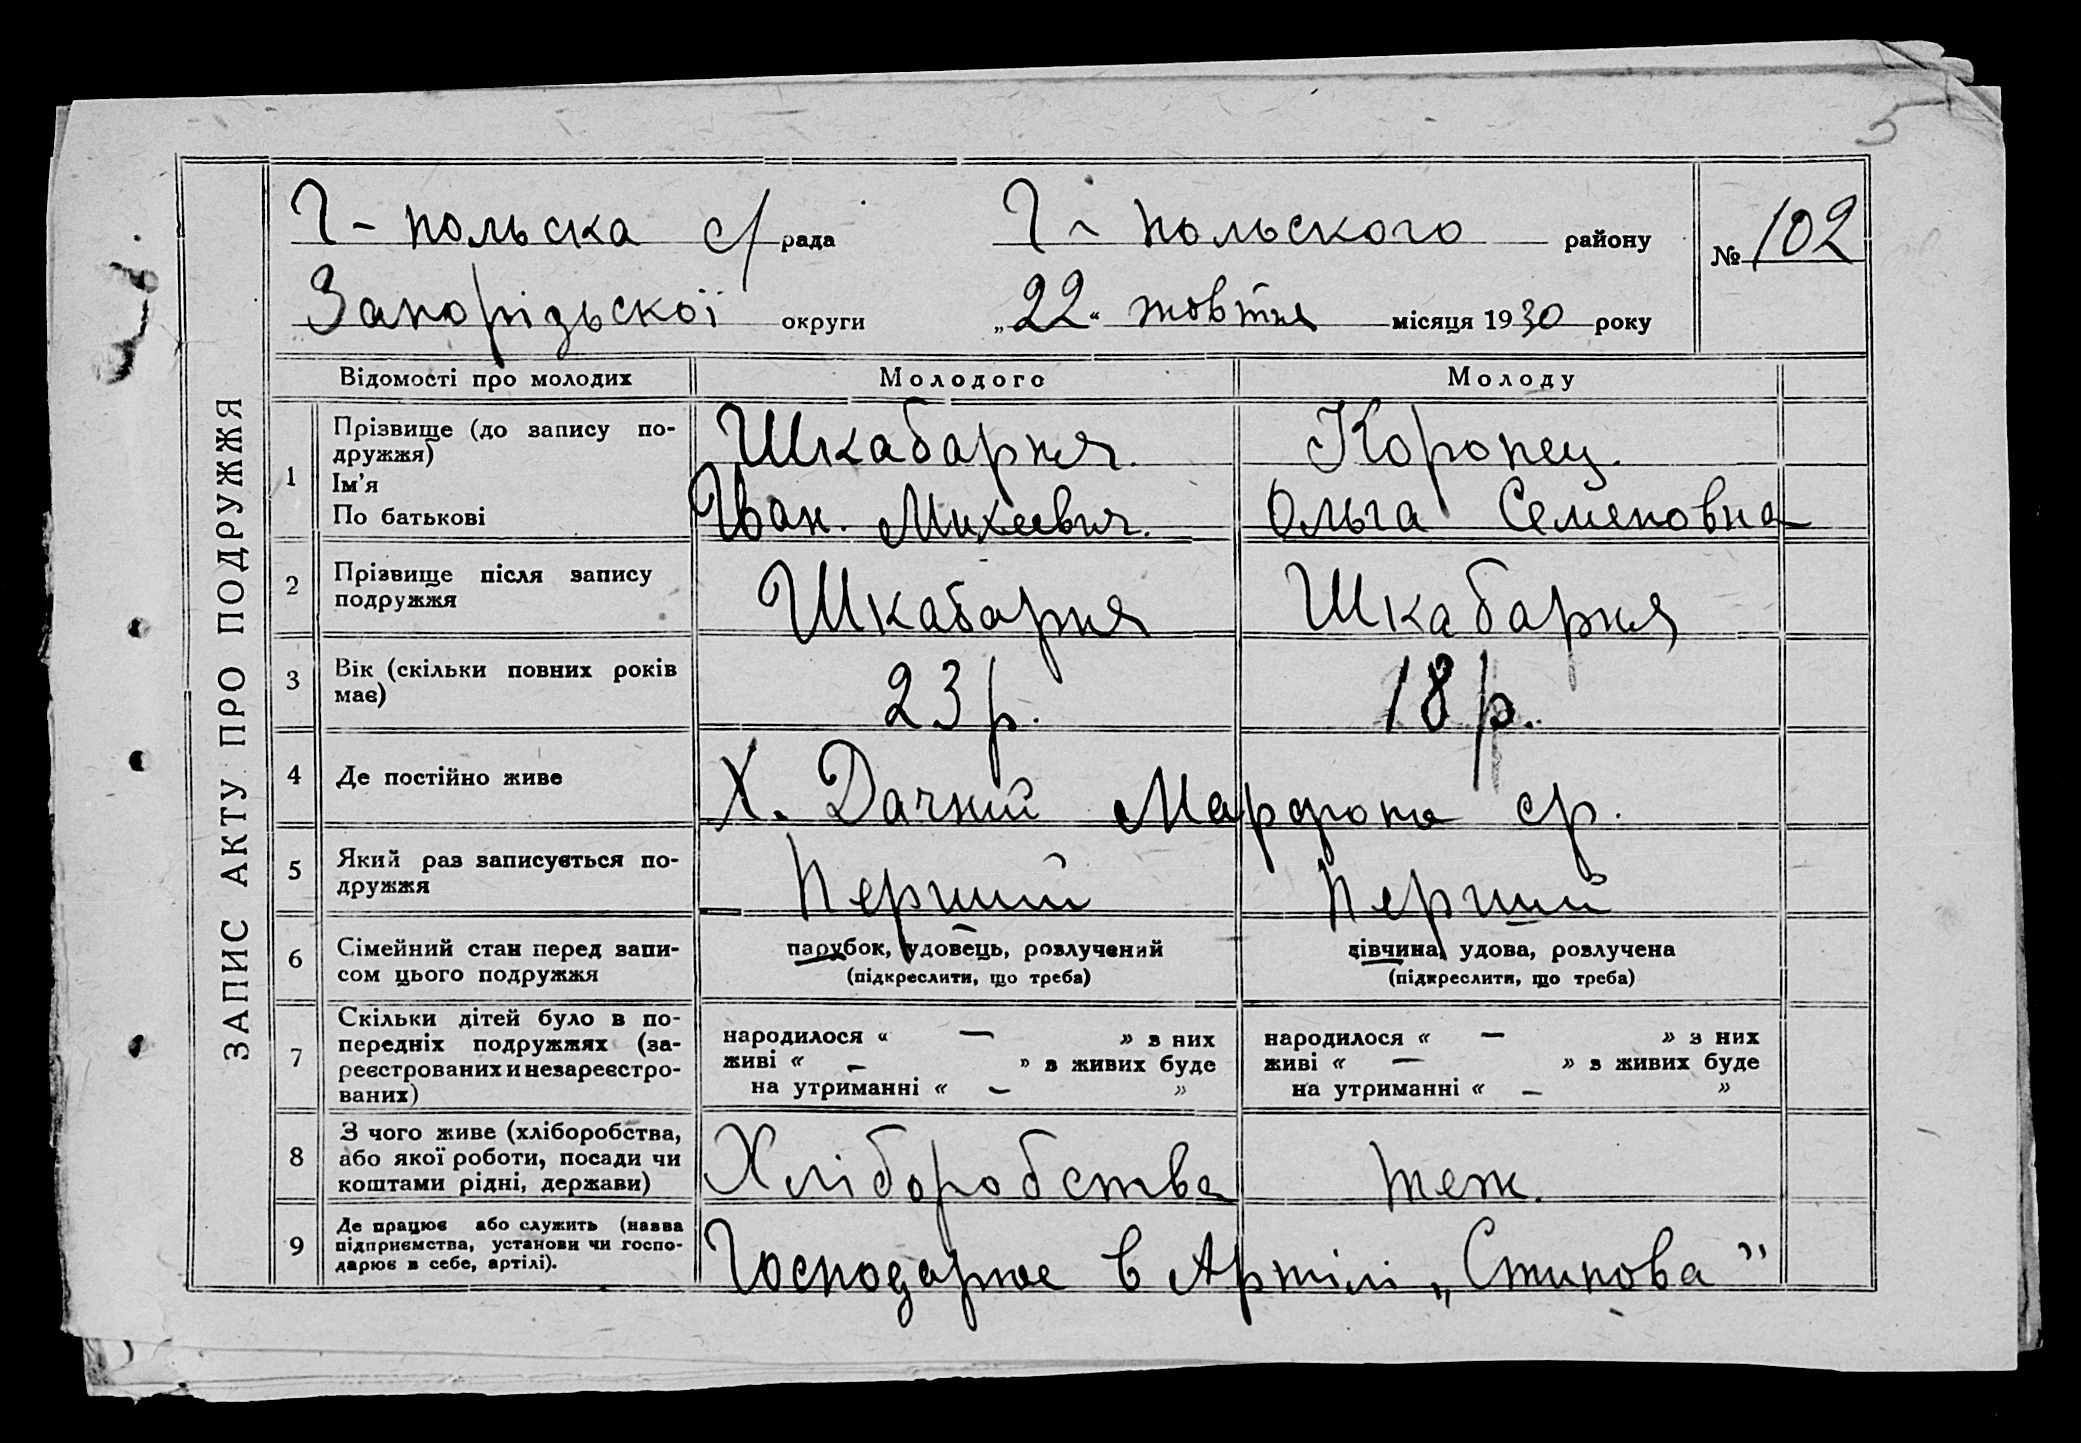 5
Г-польска с/рада Г-польского району № 102
Запорізьскої округи „22“ жовтня місяця 1930 року
ЗАПИС АКТУ ПРО ПОДРУЖЖЯ
Відомості про молодих Молодого Молоду
1 Прізвище (до запису по-
дружжя) Шкабарня. Коропец.
Ім'я
По батькові Іван. Михеевич. Ольга Семеновна
2 Прізвище після запису
подружжя Шкабарня Шкабарня
3 Вік (скільки повних років
має) 23 р. 18 р.
4 Де постійно живе Х. Дачний Марфопо ср.
5 Який раз записується по-
дружжя Перший Перший
6 Сімейний стан перед запи-
сом цього подружжя
парубок, удовець, розлучений
(підкреслити, що треба)
дівчина, удова, розлучена
(підкреслити, що треба)
7 Скільки дітей було в по-
передніх подружжях (за-
реєстрованих и незареєстро-
ваних)
народилося « — » з них
живі « — » з живих буде
на утриманні « — »
народилося « — » з них
живі « — » з живих буде
на утриманні « — »
8 З чого живе (хліборобства,
або якої роботи, посади чи
коштами рідні, держави) Хліборобства теж.
9 Де працює або служить (назва
підприємства, установи чи госпо-
дарює в себе, артілі). Господарює в Артілі „Степова”